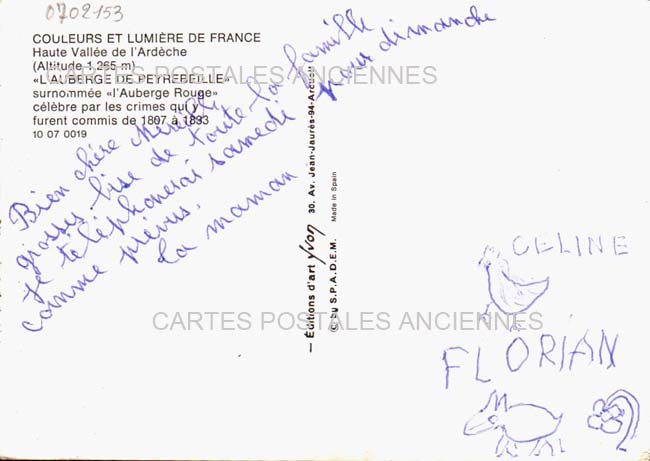 0702153
COULEURS ET LUMIÈRE DE FRANCE
Haute Vallée de l'Ardèche
(Altitude 1.265 m)
«L'AUBERGE DE PEYREBEILLE»
surnommée «l'Auberge Rouge»
célèbre par les crimes qui y
furent commis de 1807 à 1833
10 07 0019
CARTES POSTALES ANCIENNES
Bien chère Mireille,
grosses bise de toute la famille
Je téléphonerai samedi pour dimanche
comme prévus.
La maman
— Éditions d'art yvon 30. Av. Jean-Jaurès-94-Arcueil
© by S.P.A.D.E.M. Made in Spain
CELINE
CARTES POSTALES ANCIENNES
FLORIAN